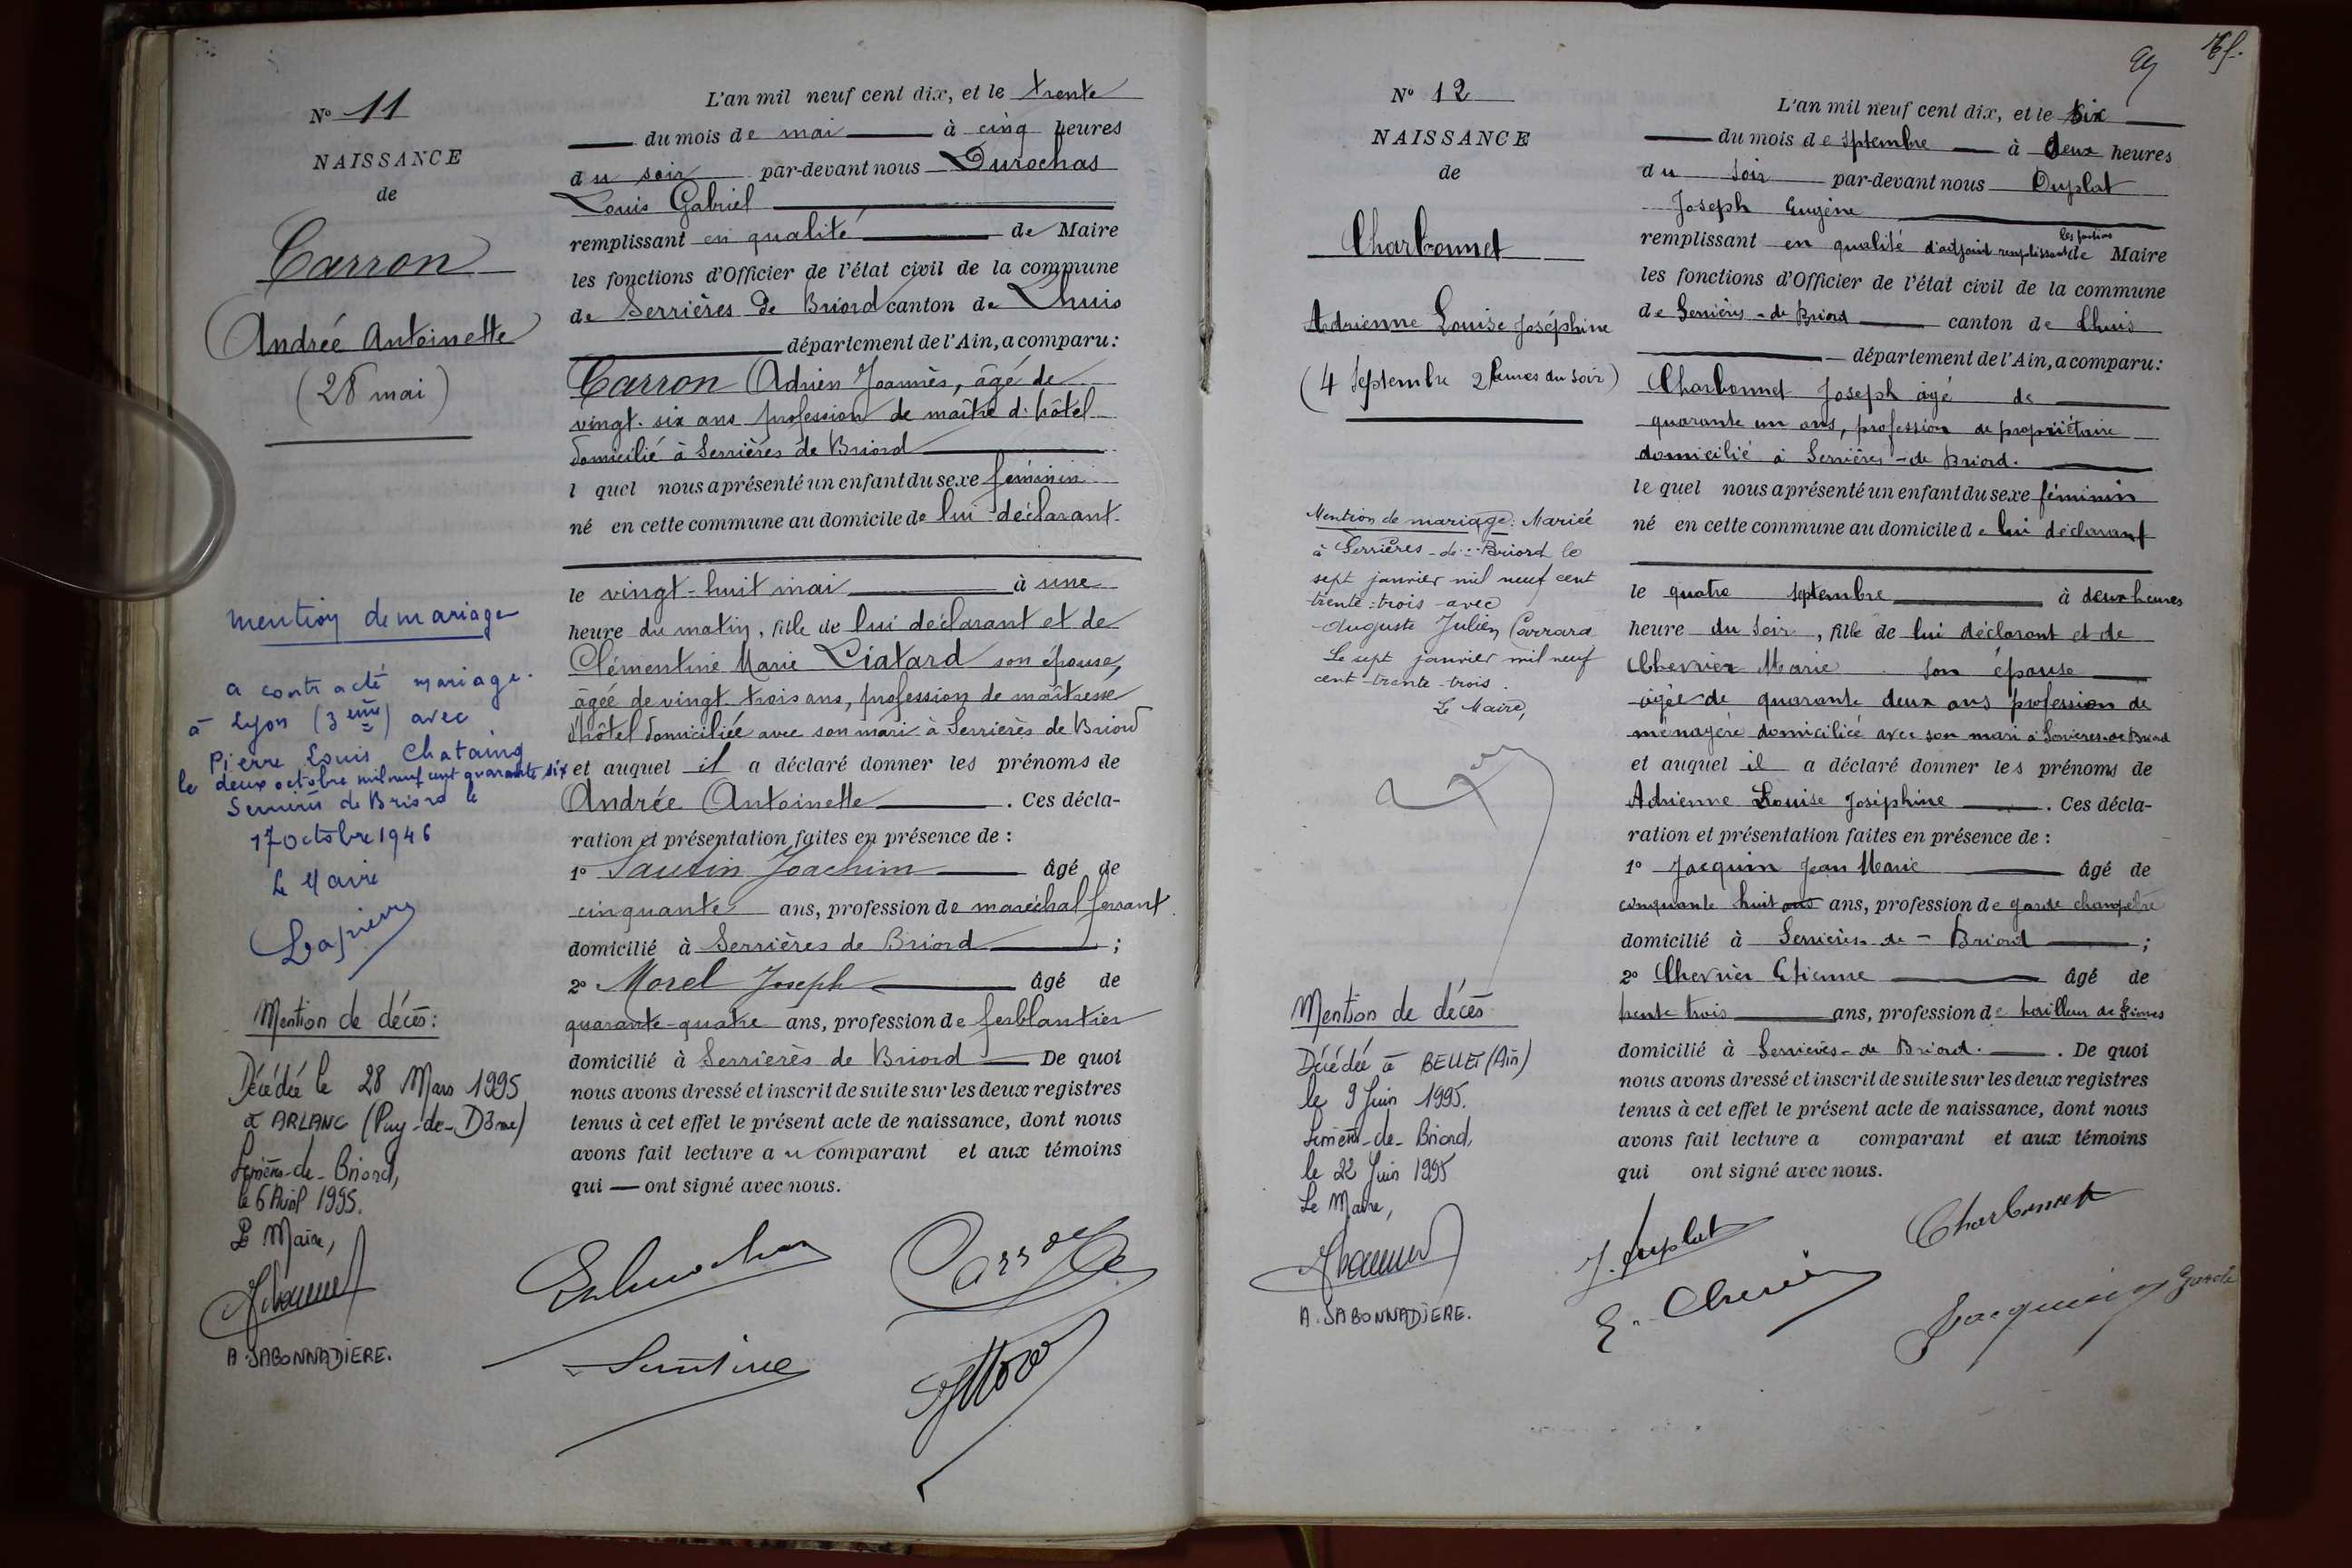 N° 11
NAISSANCE
de
Carron
Andrée Antoinette
(28 mai)
mention de mariage
a contracté mariage
à Lyon (3ème) avec
Pierre Louis Chataing
le deux octobre mil neuf cent quarante six
Serrières de Briord le
17 octobre 1946
Le Maire
Mention de décès:
Décédée le 28 Mars 1995
à ARLANC (Puy-de-Dôme)
Serrières-de-Briord,
le 6 Avril 1995.
Le Maire,
A. SABONNADIERE.
L'an mil neuf cent dix, et le trente
du mois de mai à cinq heures
du soir par-devant nous Durochas
Louis Gabriel
remplissant en qualité de Maire
les fonctions d'Officier de l'état civil de la commune
de Serrières de Briord canton de Lhuis
département de l'Ain, a comparu:
Carron Adrien Joannès, âgé de
vingt-six ans profession de maître d'hôtel
domicilié à Serrières de Briord
l quel nous a présenté un enfant du sexe féminin
né en cette commune au domicile de lui déclarant
le vingt-huit mai à une
heure du matin, fille de lui déclarant et de
Clémentine Marie Liatard son épouse,
âgée de vingt-trois ans, profession de maîtresse
d'hôtel domiciliée avec son mari à Serrières de Briord
et auquel il a déclaré donner les prénoms de
Andrée Antoinette. Ces décla-
ration et présentation faites en présence de :
1° Joachim âgé de
cinquante ans, profession de maréchal ferrant
domicilié à Serrières de Briord ;
2° Morel Joseph âgé de
quarante-quatre ans, profession de ferblantier
domicilié à Serrières de Briord De quoi
nous avons dressé et inscrit de suite sur les deux registres
tenus à cet effet le présent acte de naissance, dont nous
avons fait lecture au comparant et aux témoins
qui — ont signé avec nous.
N° 12
NAISSANCE
de
Charbonnet
Adrienne Louise Joséphine
(4 Septembre 2 heures du soir)
Mention de mariage: Mariée
à Serrières-de-Briord le
sept janvier mil neuf cent
trente-trois avec
Auguste Julien Carrard
Le sept janvier mil neuf
cent-trente-trois.
Le Maire,
Mention de décès
Décédée à BELLEY (Ain)
le 9 Juin 1995.
Serrières-de-Briord,
le 22 Juin 1995
Le Maire,
A. SABONNADIERE.
L'an mil neuf cent dix, et le six
du mois de septembre à deux heures
du soir par-devant nous Duplat
Joseph Eugène
remplissant en qualité d'adjoint remplissant les fonctions de Maire
les fonctions d'Officier de l'état civil de la commune
de Serrières-de-Briord canton de Lhuis
département de l'Ain, a comparu:
Charbonnet Joseph âgé de
quarante un ans, profession de propriétaire
domicilié à Serrières-de Briord.
le quel nous a présenté un enfant du sexe féminin
né en cette commune au domicile de lui déclarant
le quatre septembre à deux heures
heure du soir, fille de lui déclarant et de
Chevrier Marie son épouse
âgée de quarante deux ans profession de
ménagère domiciliée avec son mari à Serrières-de Briord
et auquel il a déclaré donner les prénoms de
Adrienne Louise Joséphine. Ces décla-
ration et présentation faites en présence de :
1° Jacquin Jean Marie âgé de
cinquante huit ans ans, profession de garde champêtre
domicilié à Serrières-de-Briord ;
2° Chevrier Etienne âgé de
trente trois ans, profession de
domicilié à Serrières-de Briord. De quoi
nous avons dressé et inscrit de suite sur les deux registres
tenus à cet effet le présent acte de naissance, dont nous
avons fait lecture a comparant et aux témoins
qui ont signé avec nous.
J. Duplat
Charbonnet